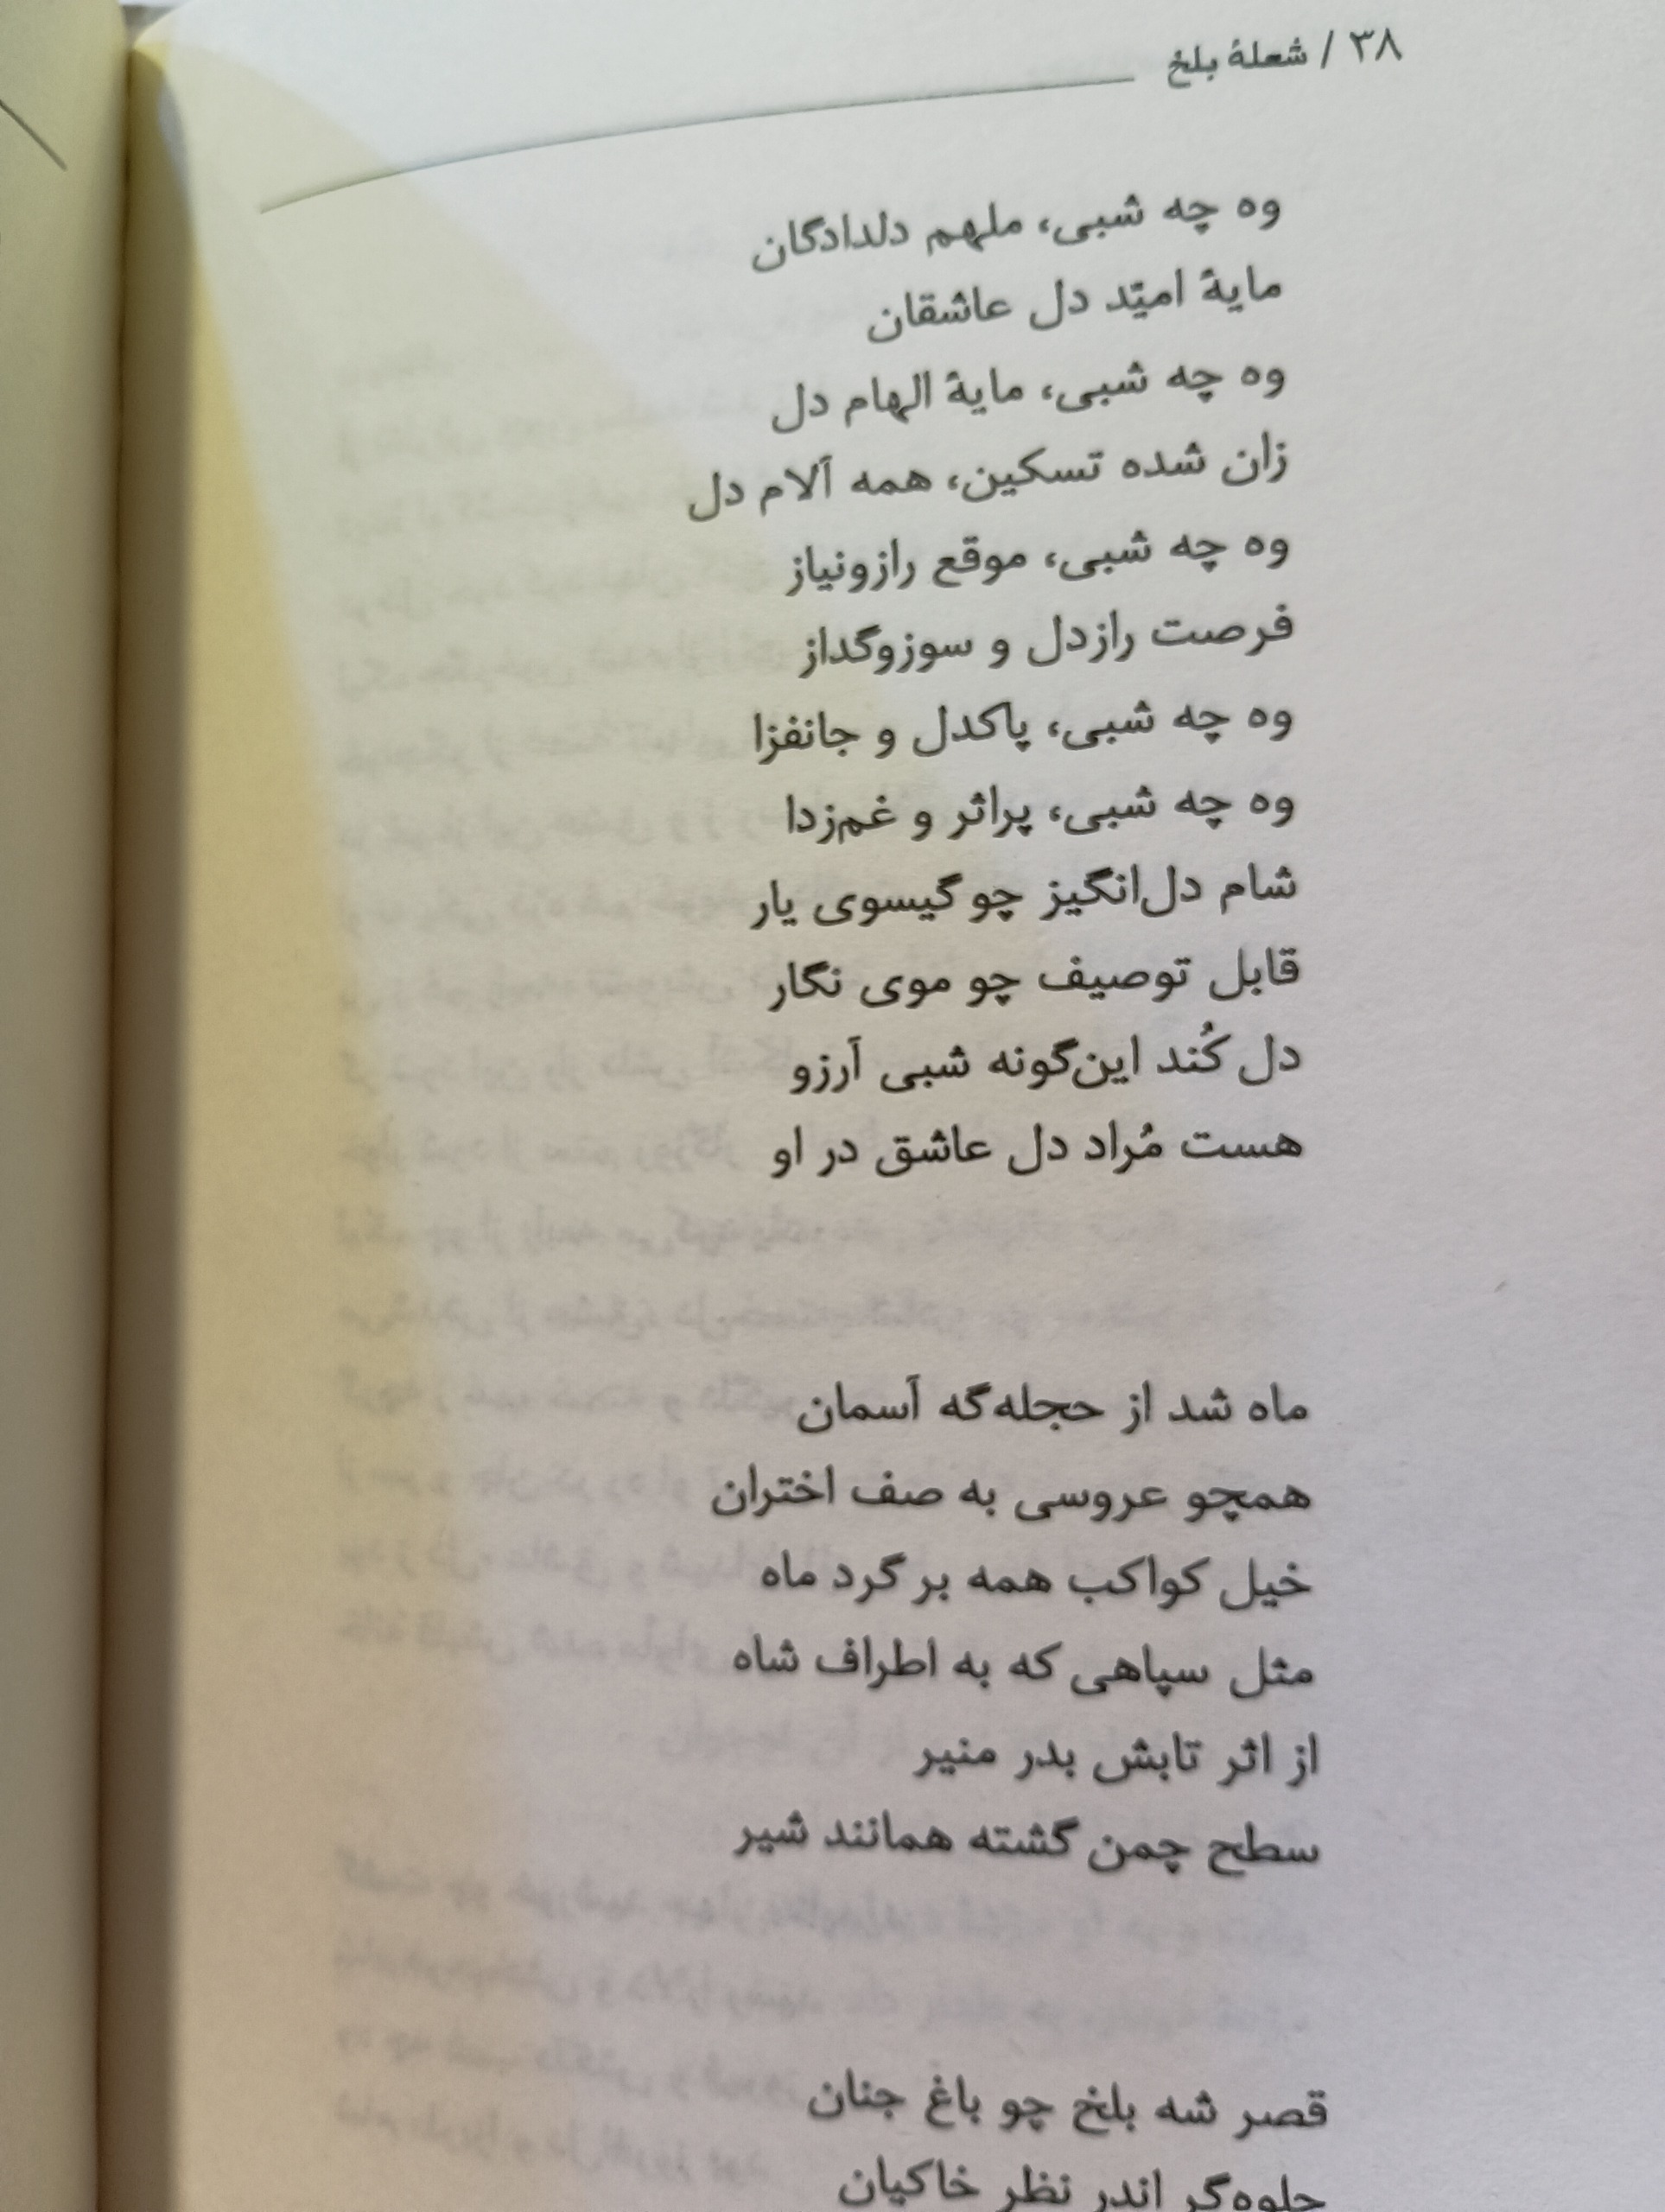 ۳۸ / شعلۀ بلخ
وه چه شبی، ملهم دلدادگان
مایۀ امیّد دل عاشقان
وه چه شبی، مایۀ الهام دل
زان شده تسکین، همه آلام دل
وه چه شبی، موقع رازونیاز
فرصت رازدل و سوزوگداز
وه چه شبی، پاکدل و جانفزا
وه چه شبی، پراثر و غم‌زدا
شام دل‌انگیز چو گیسوی یار
قابل توصیف چو موی نگار
دل کُند این‌گونه شبی آرزو
هست مُراد دل عاشق در او
ماه شد از حجله‌گه آسمان
همچو عروسی به صف اختران
خیل کواکب همه بر گرد ماه
مثل سپاهی که به اطراف شاه
از اثر تابش بدر منیر
سطح چمن گشته همانند شیر
قصر شه بلخ چو باغ جنان
جلوه‌گر اندر نظر خاکیان